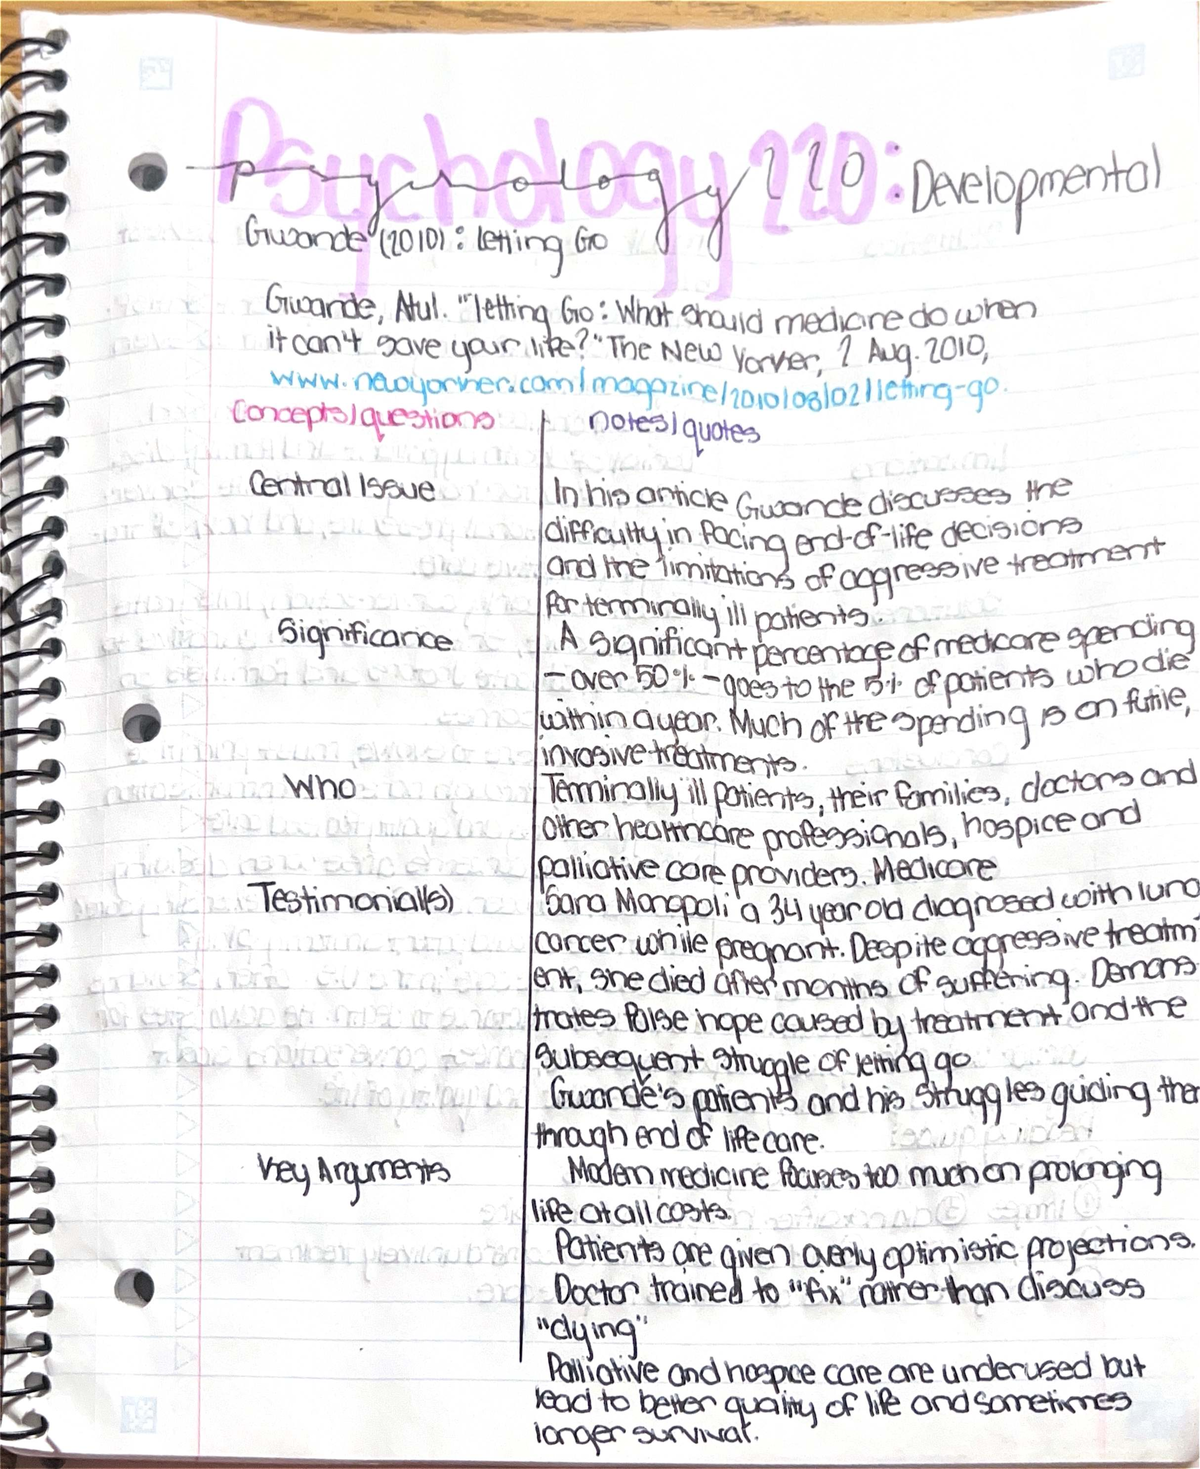 Psychology 220: Developmental
Gwande (2010): Letting Go
Gwande, Atul. "Letting Go: What should medicine do when
it can't save your life?" The New Yorker, 2 Aug. 2010,
www.newyorker.com/magazine/2010/08/02/letting-go.
Concepts/questions
notes/quotes
Central Issue
In his article Gwande discusses the
difficulty in facing end-of-life decisions
and the limitations of aggressive treatment
for terminally ill patients.
Significance
A significant percentage of medicare spending
- over 50% - goes to the 5% of patients who die
within a year. Much of the spending is on futile,
invasive treatments.
Who
Terminally ill patients, their families, doctors and
other healthcare professionals, hospice and
palliative care providers. Medicare
Testimonial(s)
Sara Monopoli a 34 year old diagnosed with lung
cancer while pregnant. Despite aggressive treatm
ent, she died after months of suffering. Demons
trates false hope caused by treatment and the
subsequent struggle of letting go
Gwande's patients and his struggles guiding them
through end of life care.
Key Arguments
Modern medicine focuses too much on prolonging
life at all costs.
Patients are given overly optimistic projections.
Doctor trained to "fix" rather than discuss
"dying"
Palliative and hospice care are underused but
lead to better quality of life and sometimes
longer survival.